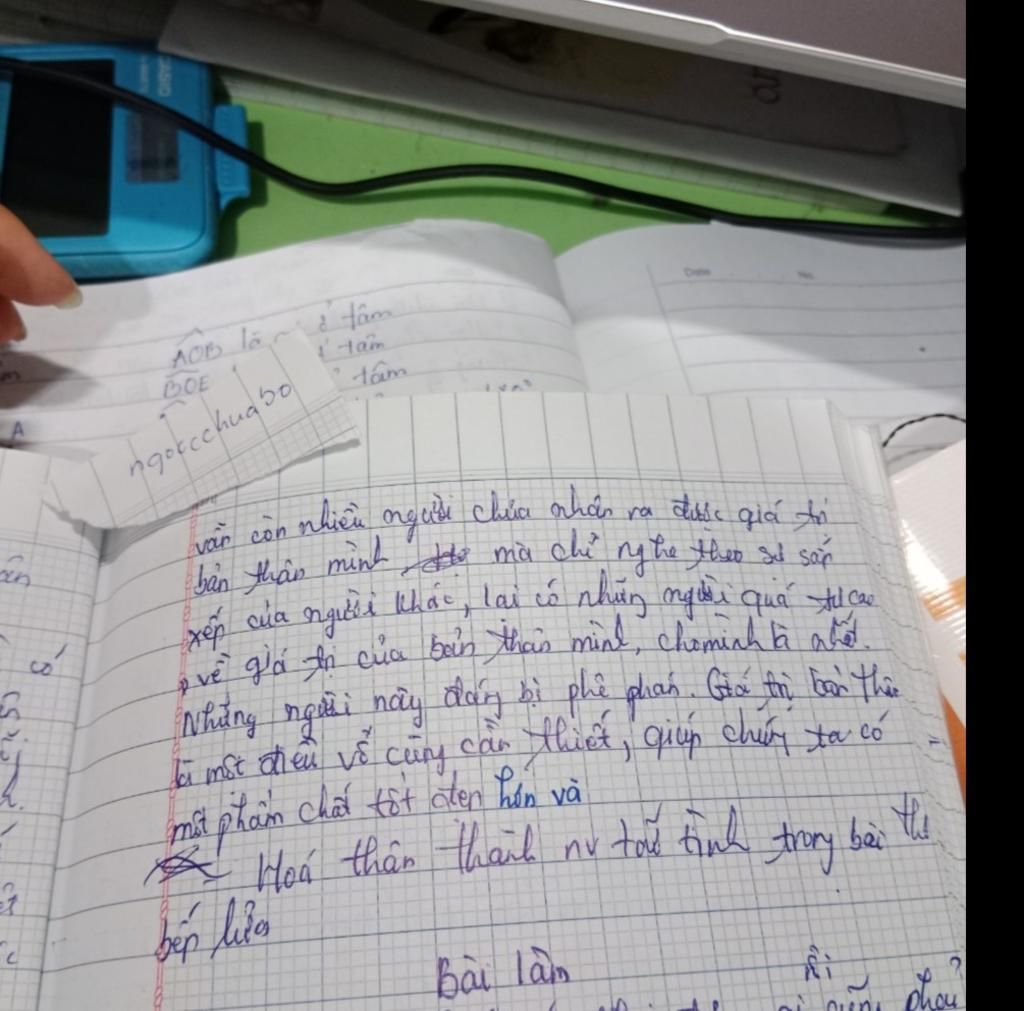 CASIO
AOB là tâm
BOE tâm
tâm
Date No.
A
ngoccchuabo
có
vẫn còn nhiều người chưa nhận ra được giá trị
bản thân mình mà chỉ nghe theo sự sắp
xếp của người khác, lại có những người quá tự cao
về giá trị của bản thân mình, cho mình là nhất.
Những người này đáng bị phê phán. Giá trị bản thân
là một điều vô cùng cần thiết, giúp chúng ta có
một phẩm chất tốt đẹp hơn và
- Hoá thân thành nv trữ tình trong bài thơ
bếp lửa
Bài làm